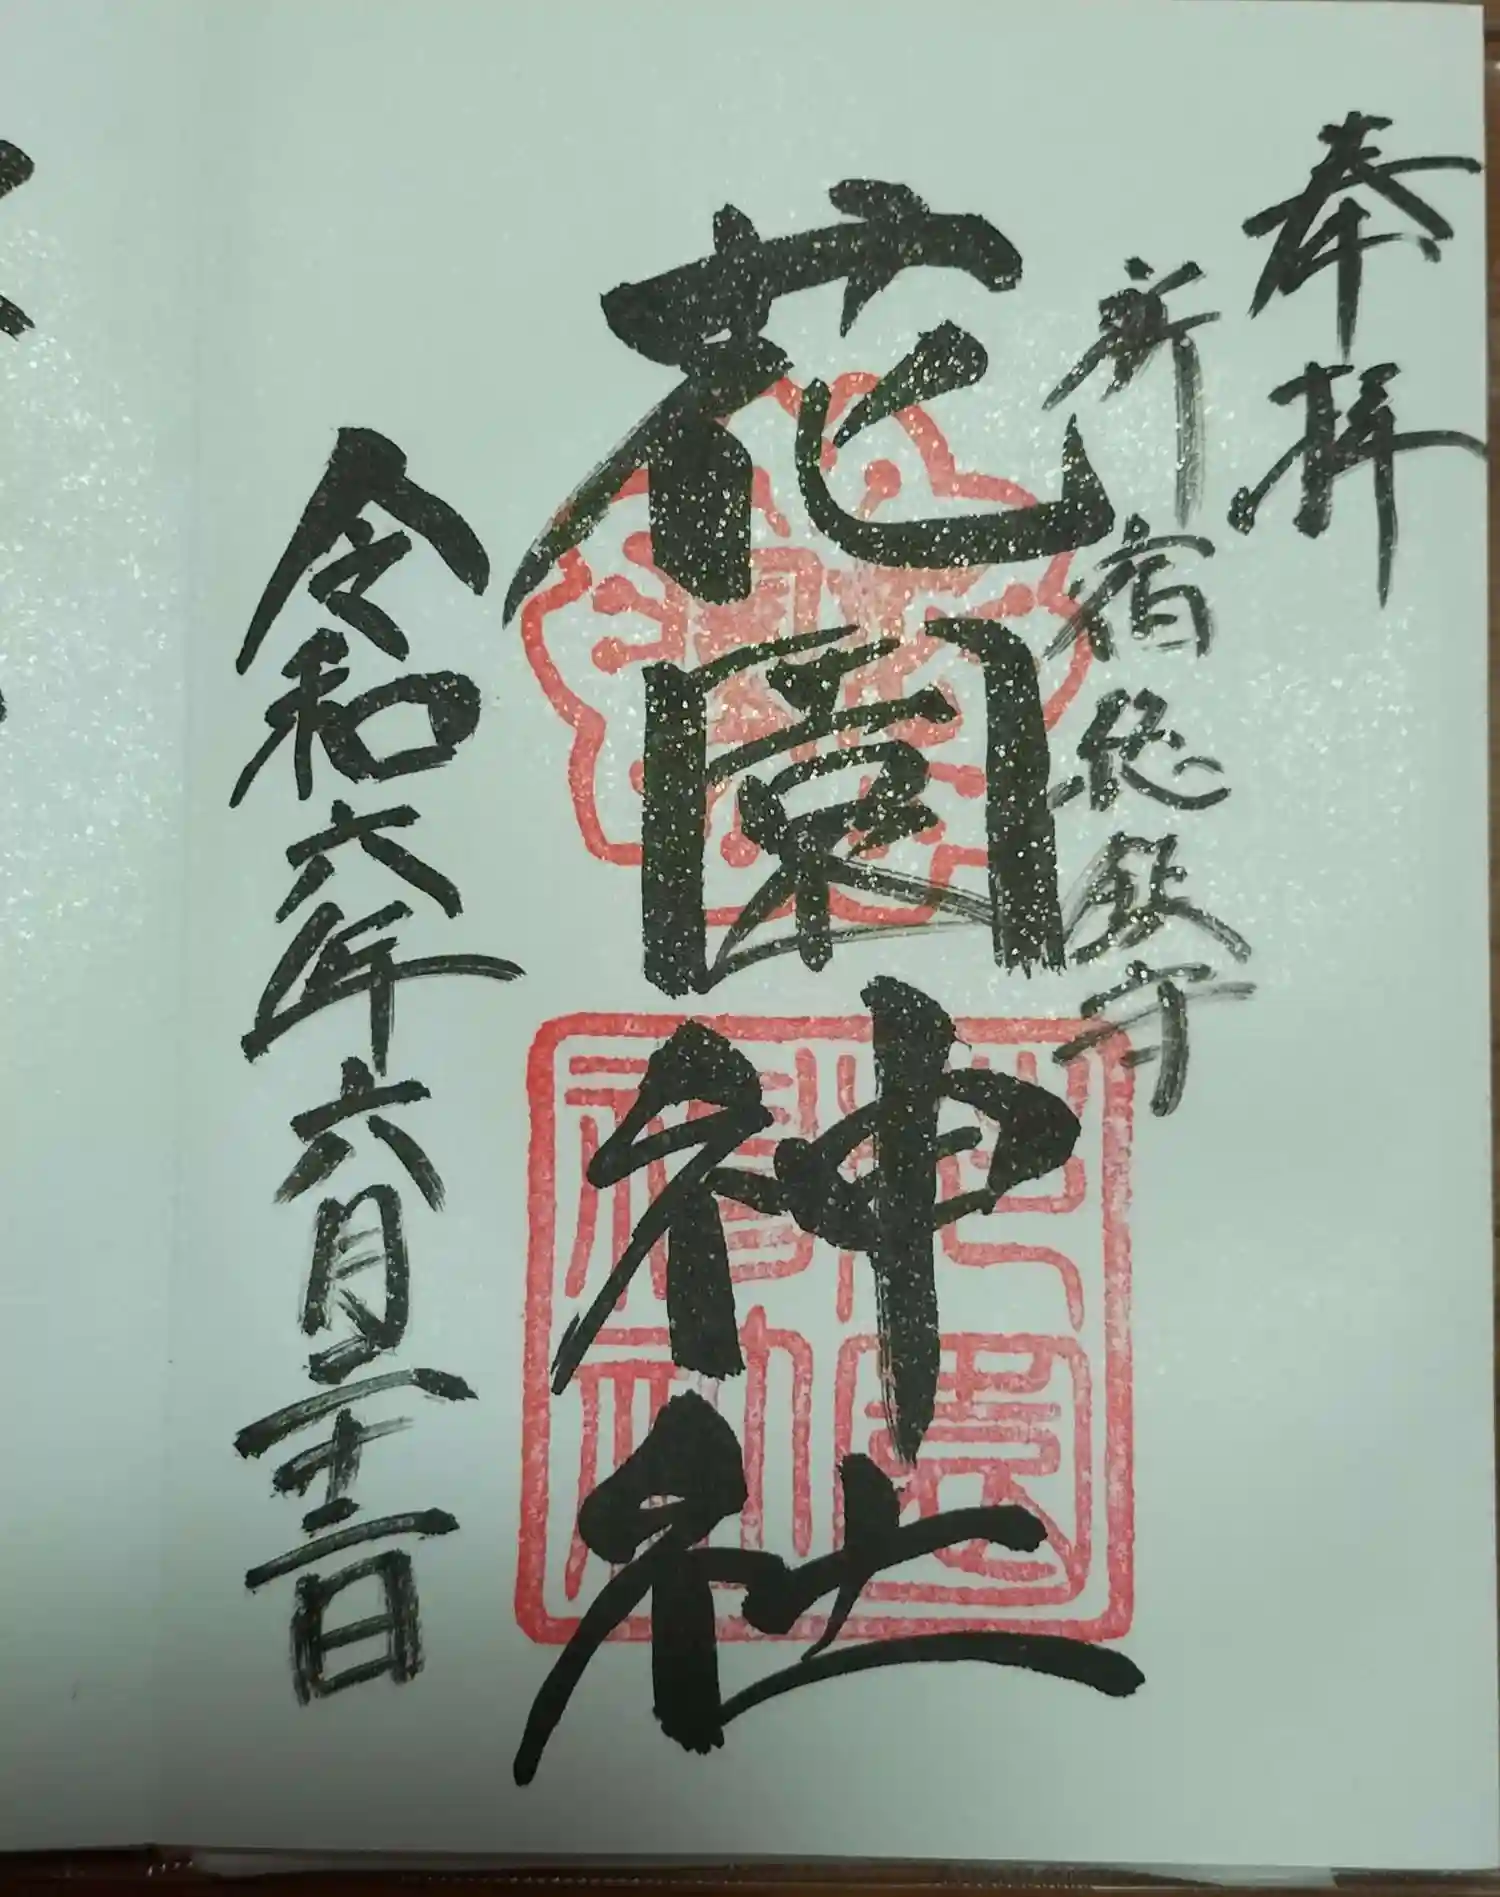 奉拝
新宿総鎮守
花園神社
令和六年六月二十二日
花園神社